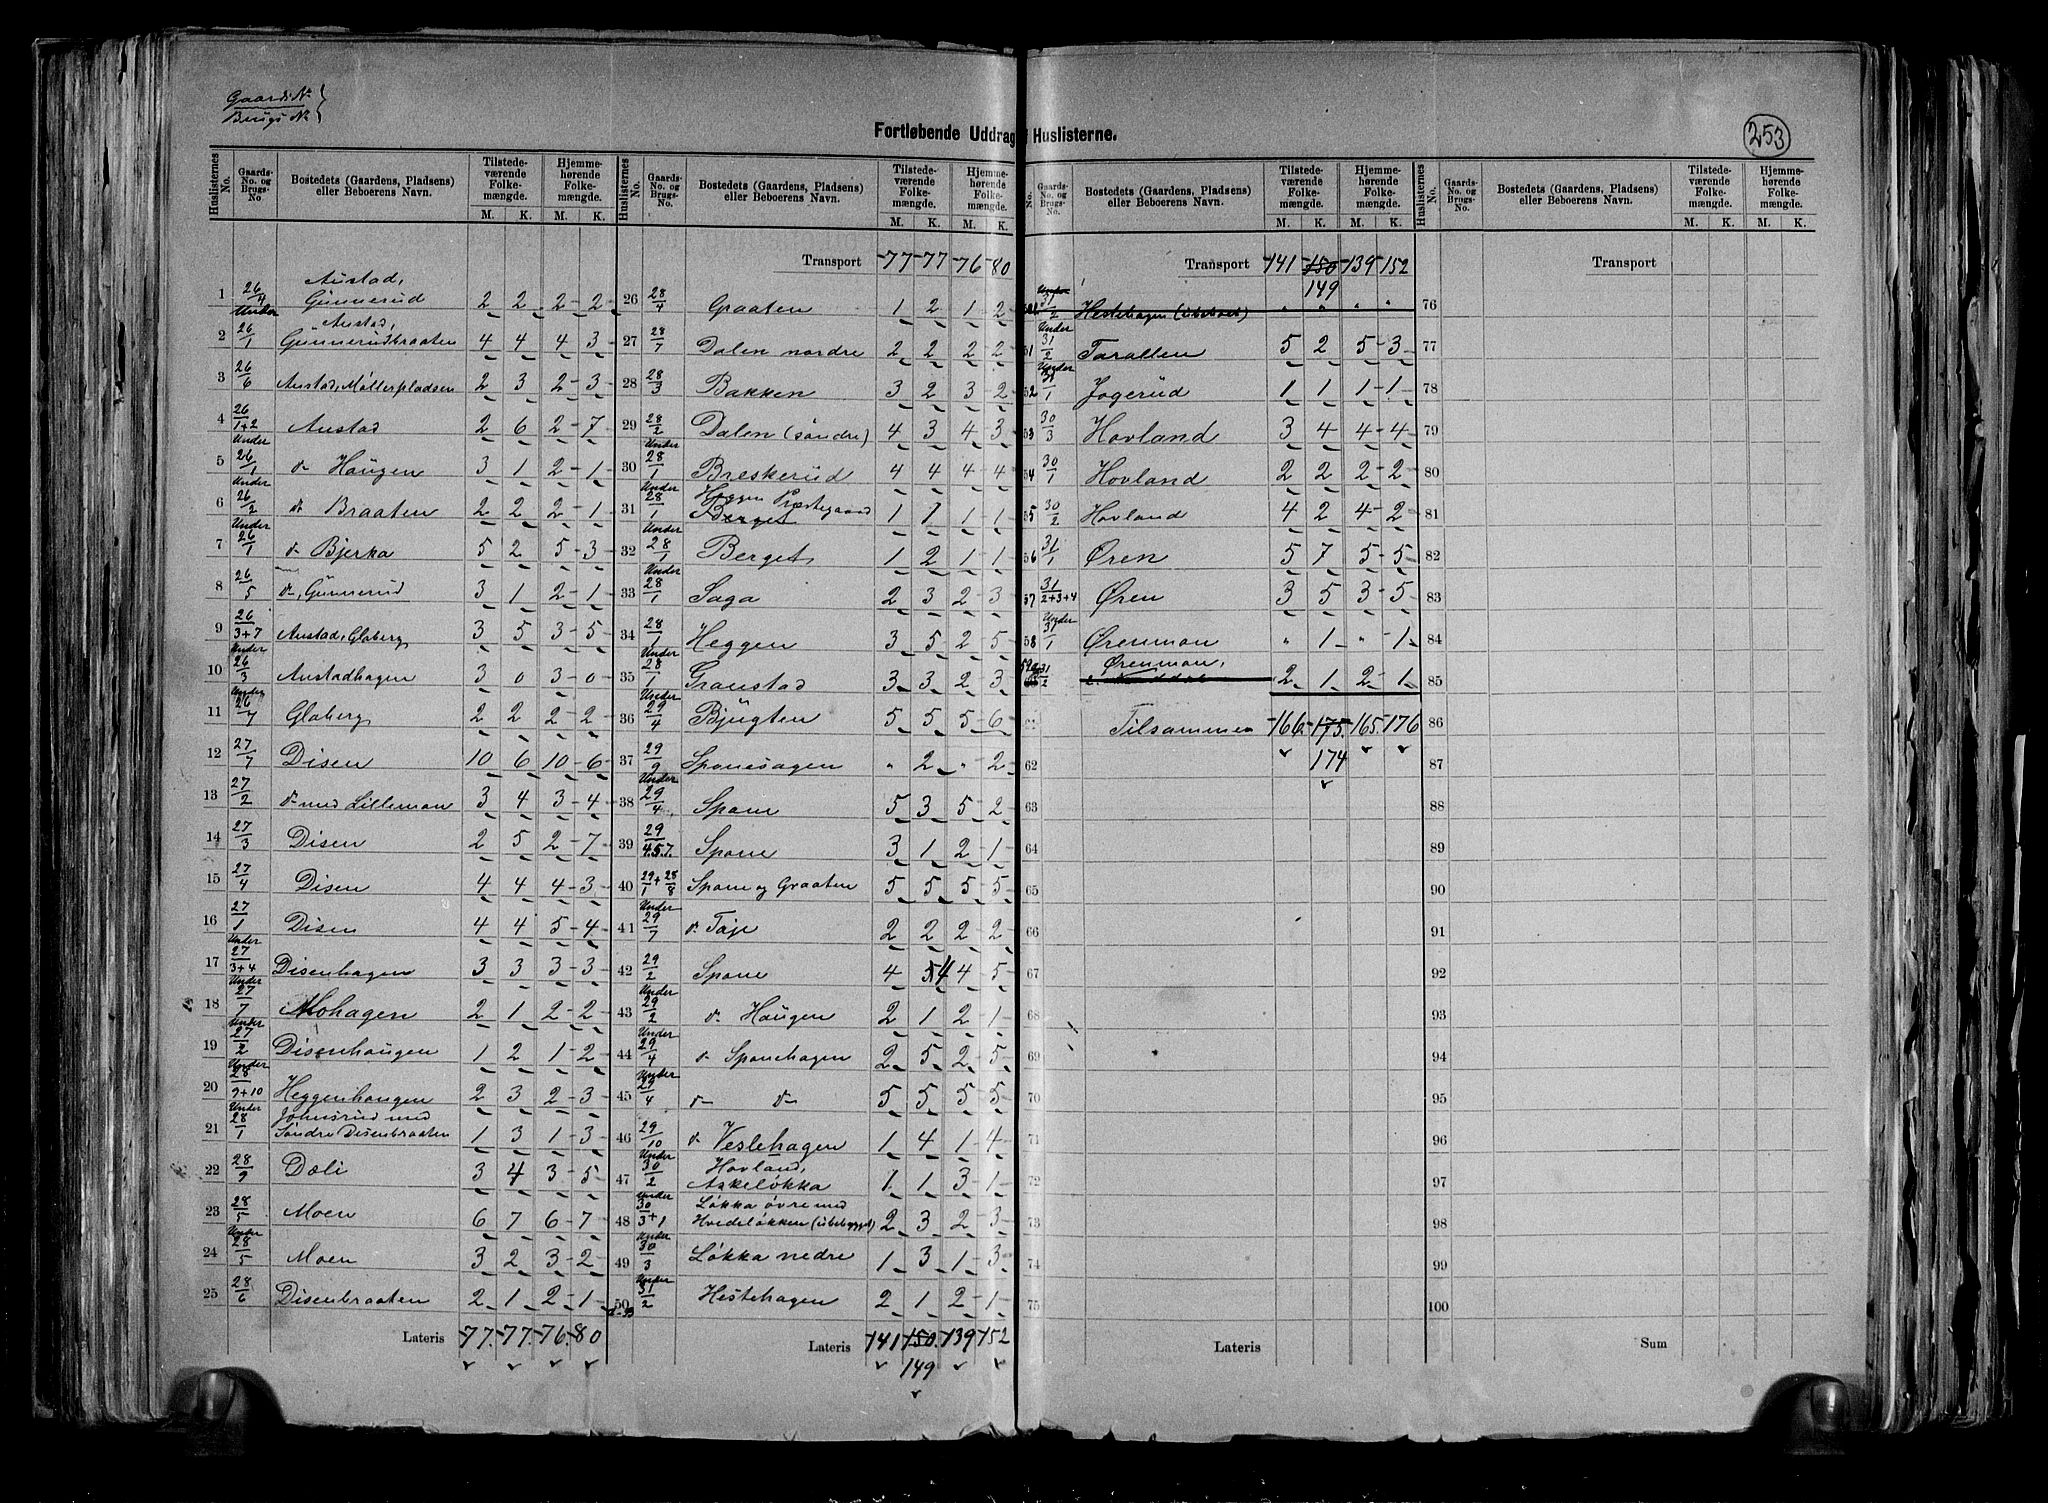 Gaards No
Brugs No
253
Fortløbende Uddrag Huslisterne.
Huslisternes No. Gaards-No. og Brugs-No. Bostedets (Gaardens, Pladsens) eller Beboerens Navn. Tilstedeværende Folkemængde. M. K. Hjemmehørende Folkemængde. M. K.
1 26/4 Austad, Gunnerud 2 2 2 2
2 Under 26/1 Austad, Gunnerudbraaten 4 4 4 3
3 26/6 Austad, Møllerpladsen 2 3 2 3
4 26/1+2 Austad 2 6 2 7
5 Under 26/1 do Haugen 3 1 2 1
6 Under 26/2 do Braaten 2 2 2 1
7 Under 26/1 do Bjerka 5 2 5 3
8 26/5 do, Gunnerud 3 1 2 1
9 26/3+7 Austad, Glaberg 3 5 3 5
10 Under 26/3 Austadhagen 3 0 3 0
11 Under 26/7 Glaberg 2 2 2 2
12 27/7 Disen 10 6 10 6
13 27/2 do med Lillemoen 3 4 3 4
14 27/3 Disen 2 5 2 7
15 27/4 Disen 4 4 4 3
16 27/1 Disen 4 4 5 4
17 Under 27/3+4 Disenhagen 3 3 3 3
18 Under 27/7 Mohagen 2 1 2 2
19 Under 27/2 Disenhaugen 1 2 1 2
20 Under 28/9+10 Heggenhaugen 2 3 2 3
21 Under 28/1 Johnsrud med Søndre Disenbraaten 1 3 1 3
22 28/9 Dæli 3 4 3 5
23 28/5 Moen 6 7 6 7
24 Under 28/5 Moen 3 2 3 2
25 28/6 Disenbraaten 2 1 2 1
Lateris 77. 77. 76 80
Huslisternes No. Gaards-No. og Brugs-No. Bostedets (Gaardens, Pladsens) eller Beboerens Navn. Tilstedeværende Folkemængde. M. K. Hjemmehørende Folkemængde. M. K.
Transport 77 77 76 80
26 28/4 Graaten 1 2 1 2
27 28/7 Dalen nordre 2 2 2 2
28 28/3 Bakken 3 2 3 2
29 28/2 Dalen (søndre) 4 3 4 3
30 Under 28/1 Breskerud 4 4 4 4
31 Under 28/1 Heggen Præstegaard Berget 1 1 1 1
32 Under 28/1 Berget 1 2 1 1
33 Under 28/1 Saga 2 3 2 3
34 28/1 Heggen 3 5 2 5
35 Under 28/1 Granstad 3 3 2 3
36 Under 29/4 Bjugten 5 5 5 6
37 29/9 Sponesagen " 2 " 2
38 Under 29/4 Spone 5 3 5 2
39 29/4.5.7. Spone 3 1 2 1
40 29/1 + 28/8 Spone og Graaten 5 5 5 5
41 Under 29/7 do Taje 2 2 2 2
42 29/2 Spone 4 5 4 4 5
43 Under 29/2 do Haugen 2 1 2 1
44 Under 29/4 do Sponehagen 2 5 2 5
45 Under 29/4 do do 5 5 5 5
46 29/10 do Veslehagen 1 4 1 4
47 Under 30/2 Hovland, Askeløkka 1 1 3 1
48 Under 30/3+1 Løkka øvre med Hvedeløkken (ubebygget) 2 3 2 3
49 Under 30/3 Løkka nedre 1 3 1 3
50 Under 31/2 Hestehagen 2 1 2 1
Lateris 141 150. 139 152
149
No. Gaards-No. og Brugs-No. Bostedets (Gaardens, Pladsens) eller Beboerens Navn. Tilstedeværende Folkemængde. M. K. Hjemmehørende Folkemængde. M. K.
Transport 141 150 139 152
149
Under 31/2 Hestehagen (ubeboet) " " " "
51 Under 31/2 Tarallen 5 2 5 3
52 Under 31/1 Jogerud 1 1 1 1
53 30/3 Hovland 3 4 4 4
54 30/1 Hovland 2 2 2 2
55 30/2 Hovland 4 2 4 2
56 31/1 Øren 5 7 5 5
57 31/2+3+4 Øren 3 5 3 5
58 Under 31/1 Ørenmoen " 1 " 1
59 31/2 Ørenmoen, 2 1 2 1
Tilsammen 166. 175. 165. 176
174
62
63
64
65
66
67
68
69
70
71
72
73
74
75
Lateris
Huslisternes No. Gaards-No. og Brugs-No. Bostedets (Gaardens, Pladsens) eller Beboerens Navn. Tilstedeværende Folkemængde. M. K. Hjemmehørende Folkemængde. M. K.
Transport
76
77
78
79
80
81
82
83
84
85
86
87
88
89
90
91
92
93
94
95
96
97
98
99
100
Sum